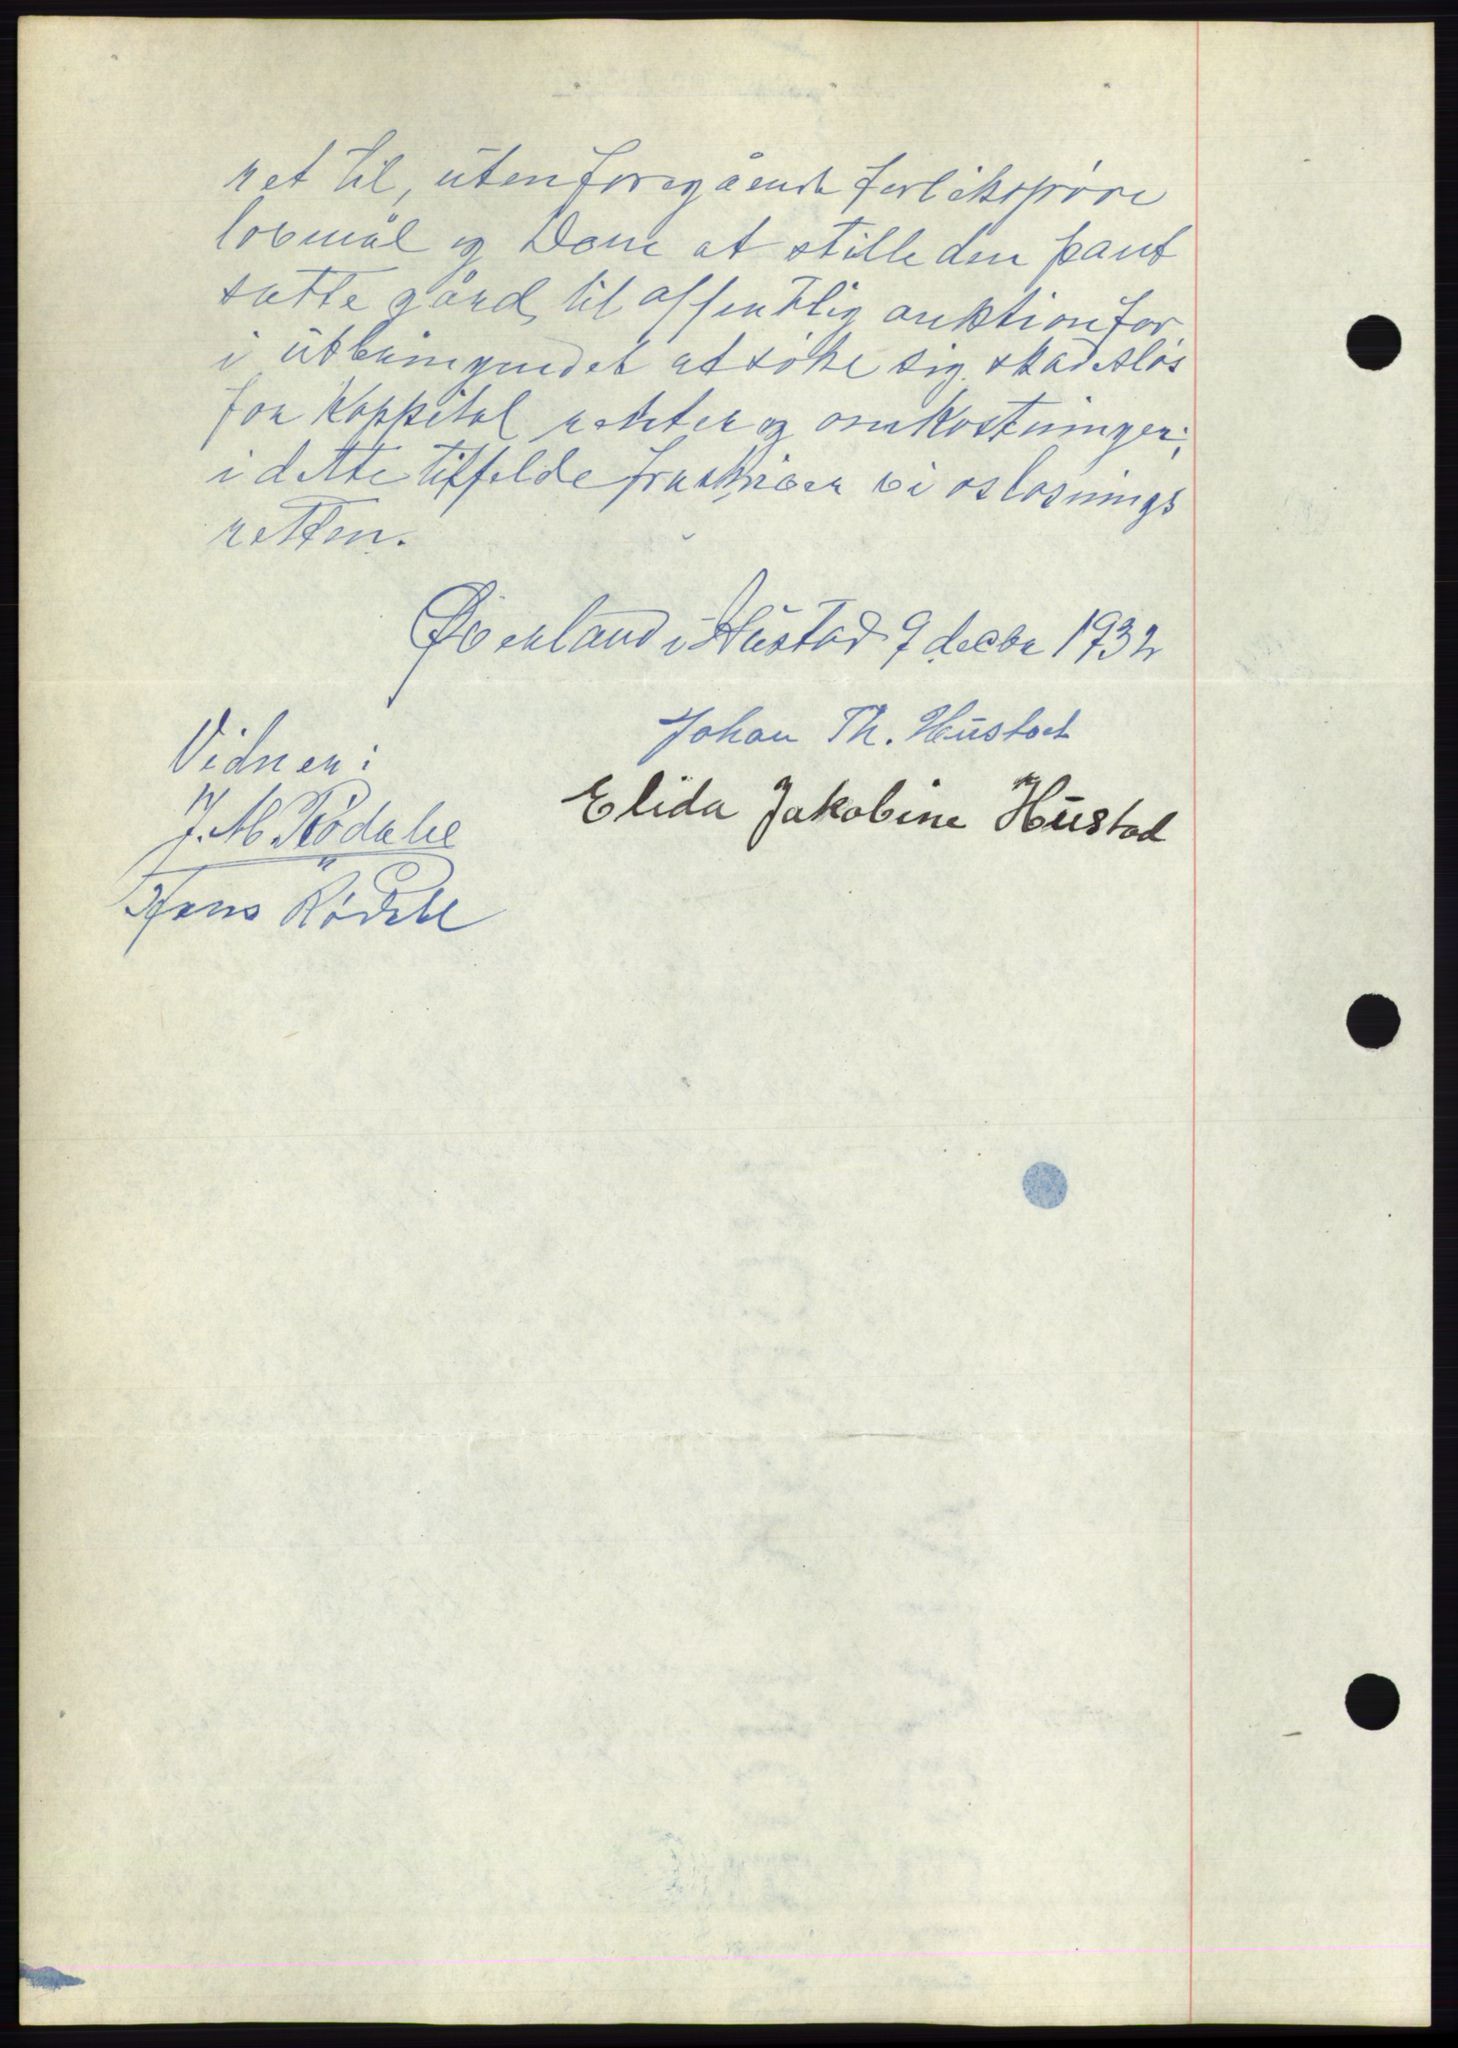 ret til, uten foregående forliksprøve
lovmål og Dom at stille den pant
satte gård til offentlig auktion for
i utbringendet at søke sig skadesløs
for Kappital renter og omkostninger;
i dette tilfelde fraskriver vi os løsnings
retten.
Øverland i Hustad 9 decbr 1932
Johan Th. Hustad
Vidner:
Elida Jakobine Hustad
J. M. Rødahl
Hans Rødahl